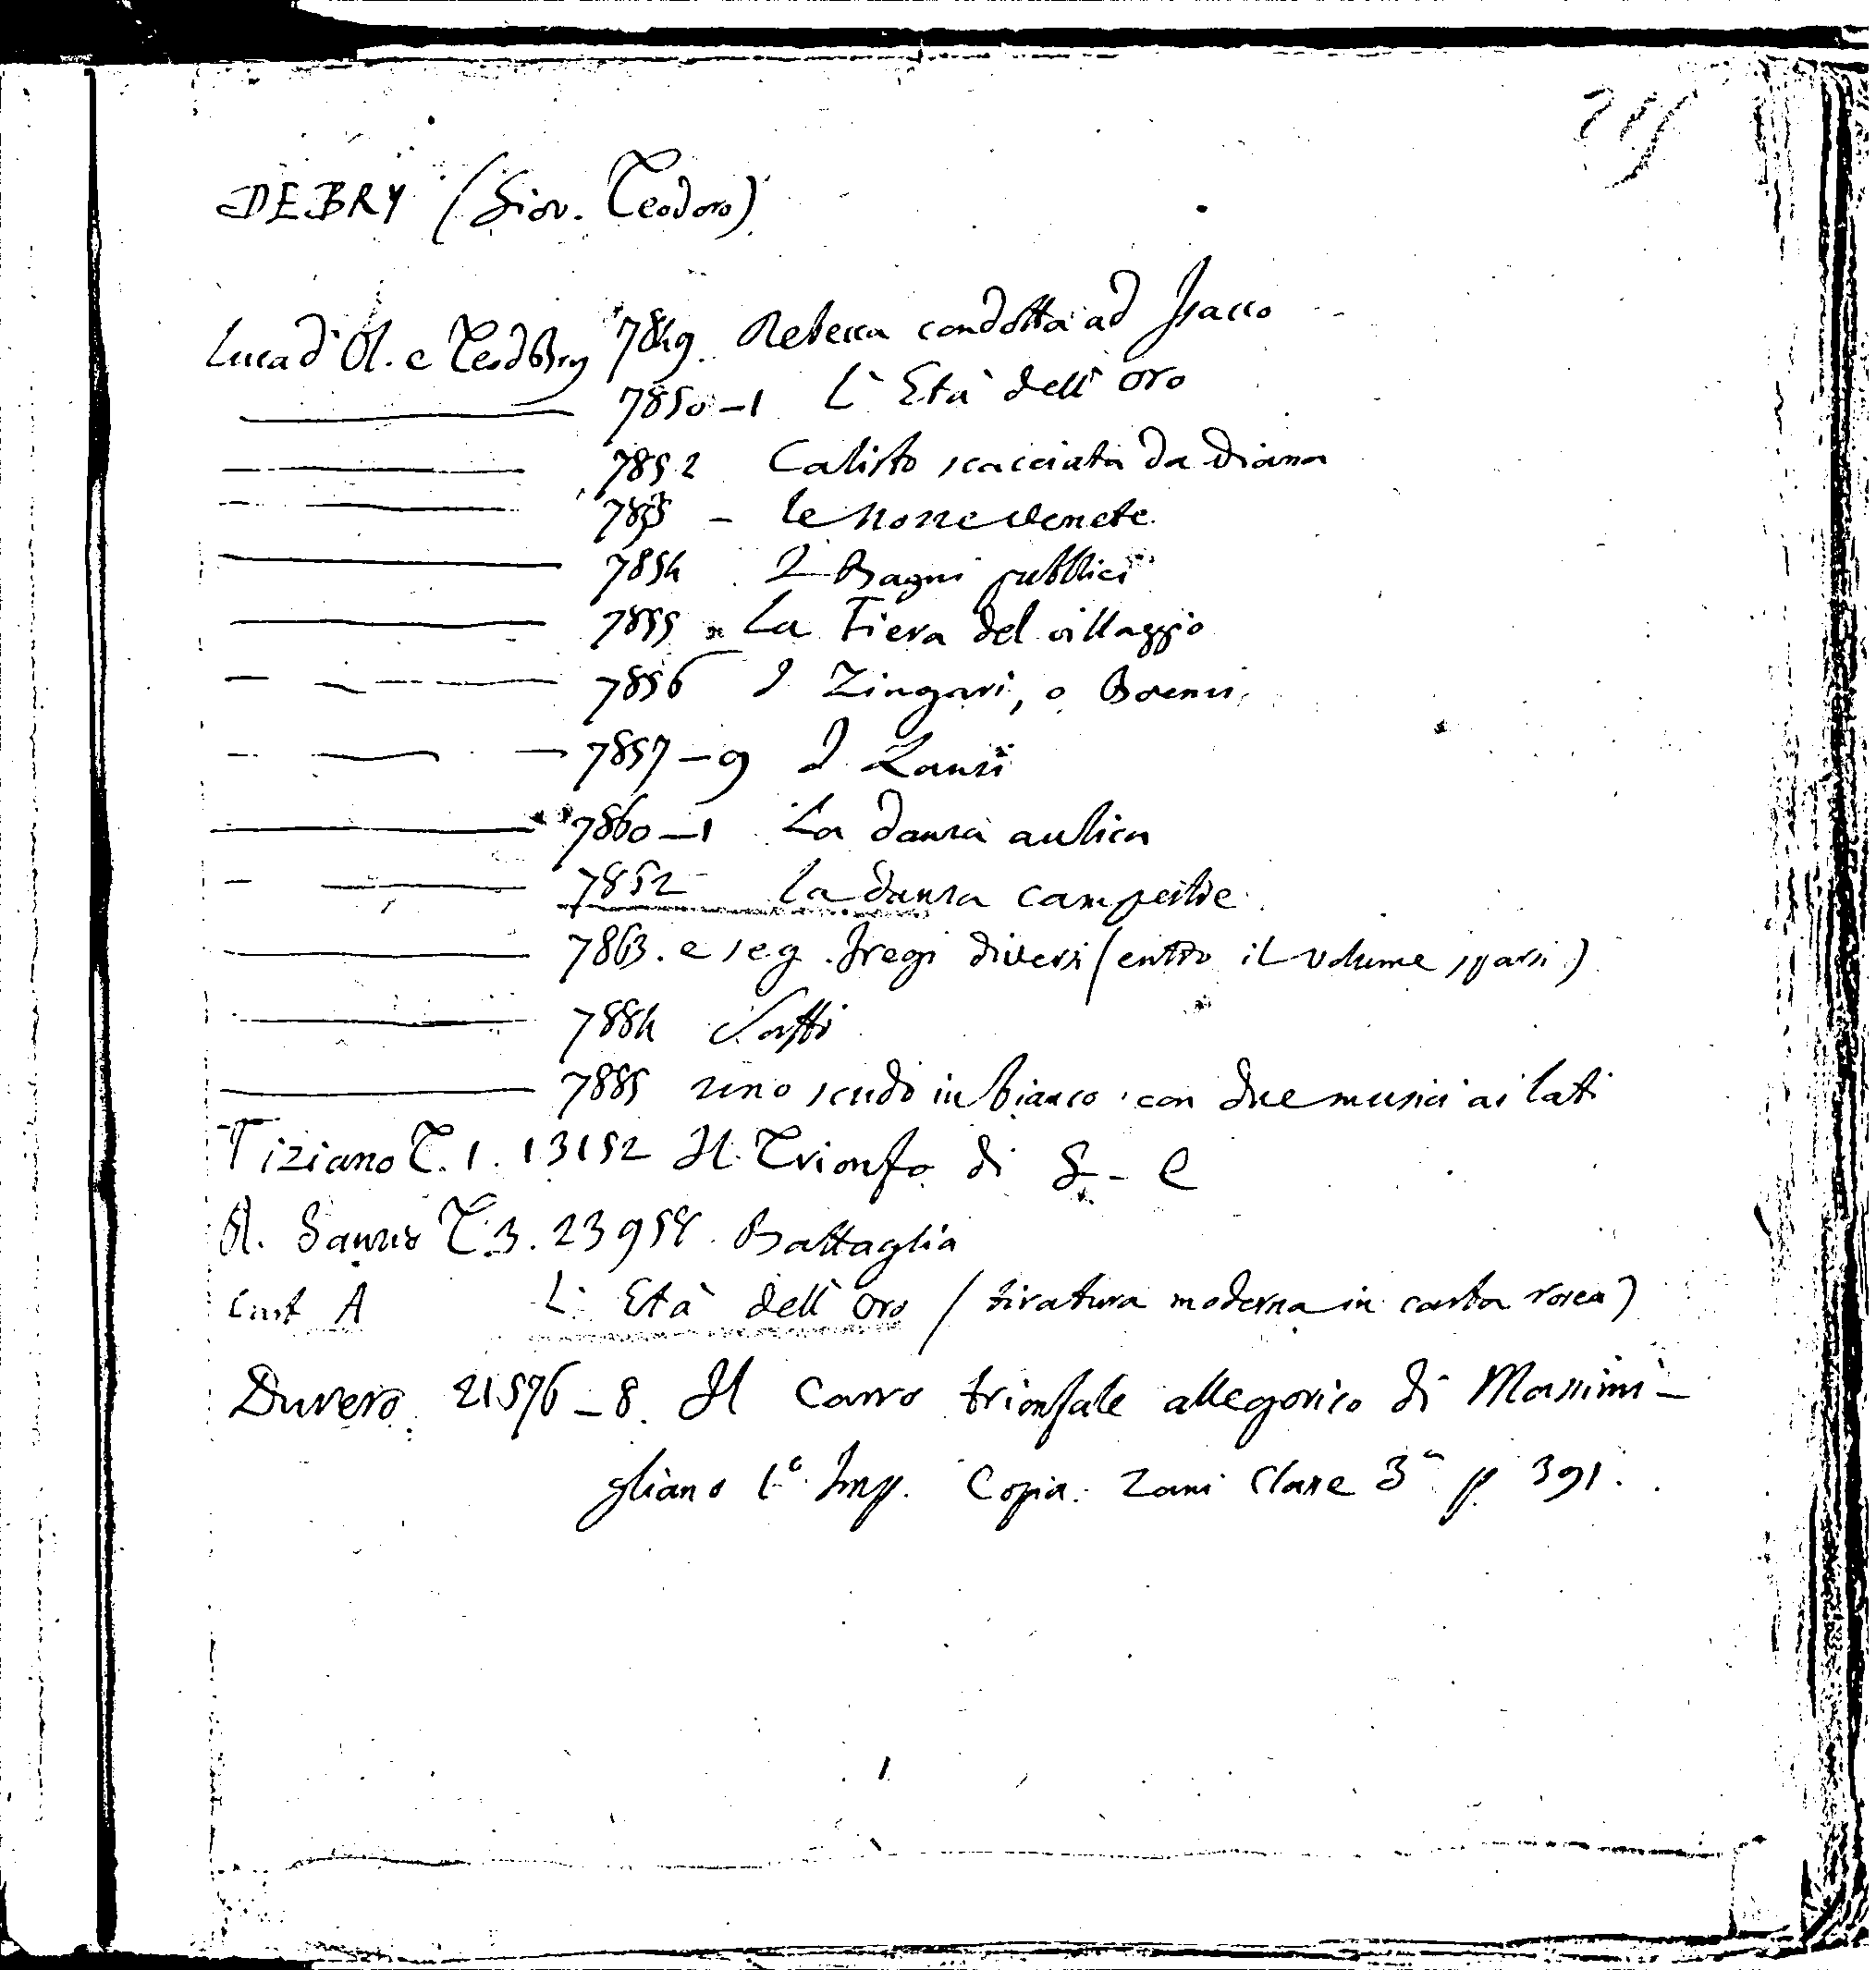 DEBRY (Giov. Teodoro)
Luca d'Ol. e Teod Bry 7849. Rebecca condotta ad Isacco
7850-1 L'Età dell'oro
7852 Calisto scacciata da Diana
7853 - le nozze venete
7854 I Bagni pubblici
7855 La Fiera del villaggio
7856 I Zingari, o Boemi
7857-9 I Lanzi
7860-1 La danza aulica
7852 la danza campestre
7863. e seg. Fregi diversi (entro il volume sparsi)
7884
7885 uno scudo in bianco con due musici ai lati
Tiziano T. 1. 13152 Il Trionfo di G- C
A. T. 3. 23958 Battaglia
Cart A L'Età dell'oro (tiratura moderna in carta rosea)
Durero 21576-8. Il Carro trionfale allegorico di Massimi-
gliano 1º Imp. Copia. Zani Classe 3ª p 391.